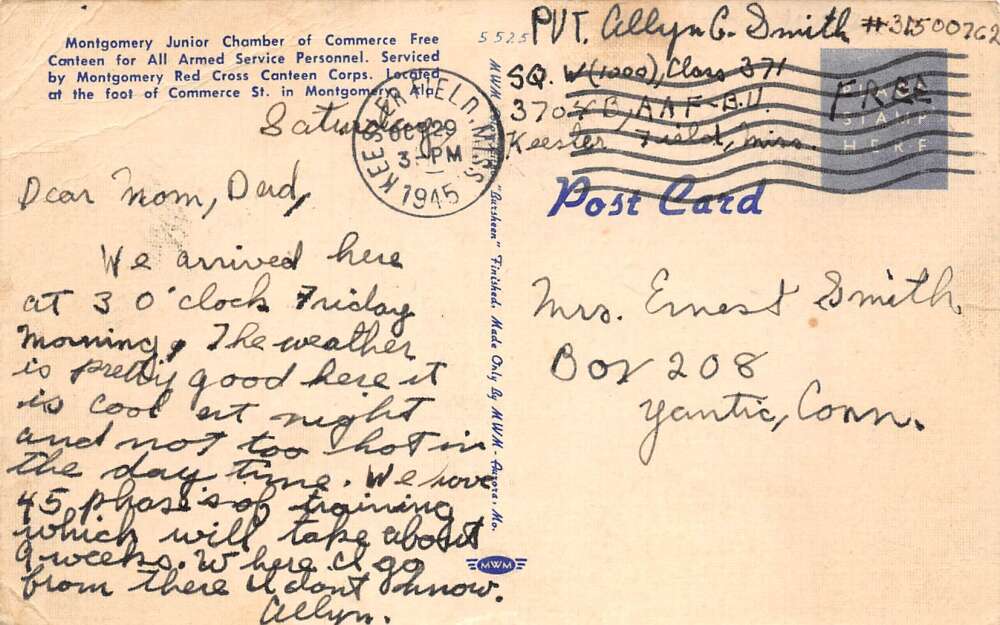 Montgomery Junior Chamber of Commerce Free
Canteen for All Armed Service Personnel. Serviced
by Montgomery Red Cross Canteen Corps. Located
at the foot of Commerce St. in Montgomery, Ala.
Saturday
Dear Mom, Dad,
We arrived here
at 3 O'clock Friday
morning, The weather
is pretty good here it
is cool at night
and not too hot in
the day time. We have
45 phase's of training
which will take about
9 weeks. Where I go
from there I dont know.
Allyn.
KEESLER FIELD, MISS.
OCT 29
3-PM
1945
5525
"Bursheen" Finished. Made Only By MWM - Aurora, Mo.
MWM
PVT. Allyn C. Smith #31500762
SQ. W(1000), Class 371
3704 B, AAF-B.U.
Keesler Field, Miss.
FREE
STAMP
HERE
Post Card
Mrs. Ernest Smith
Box 208
Yantic, Conn.